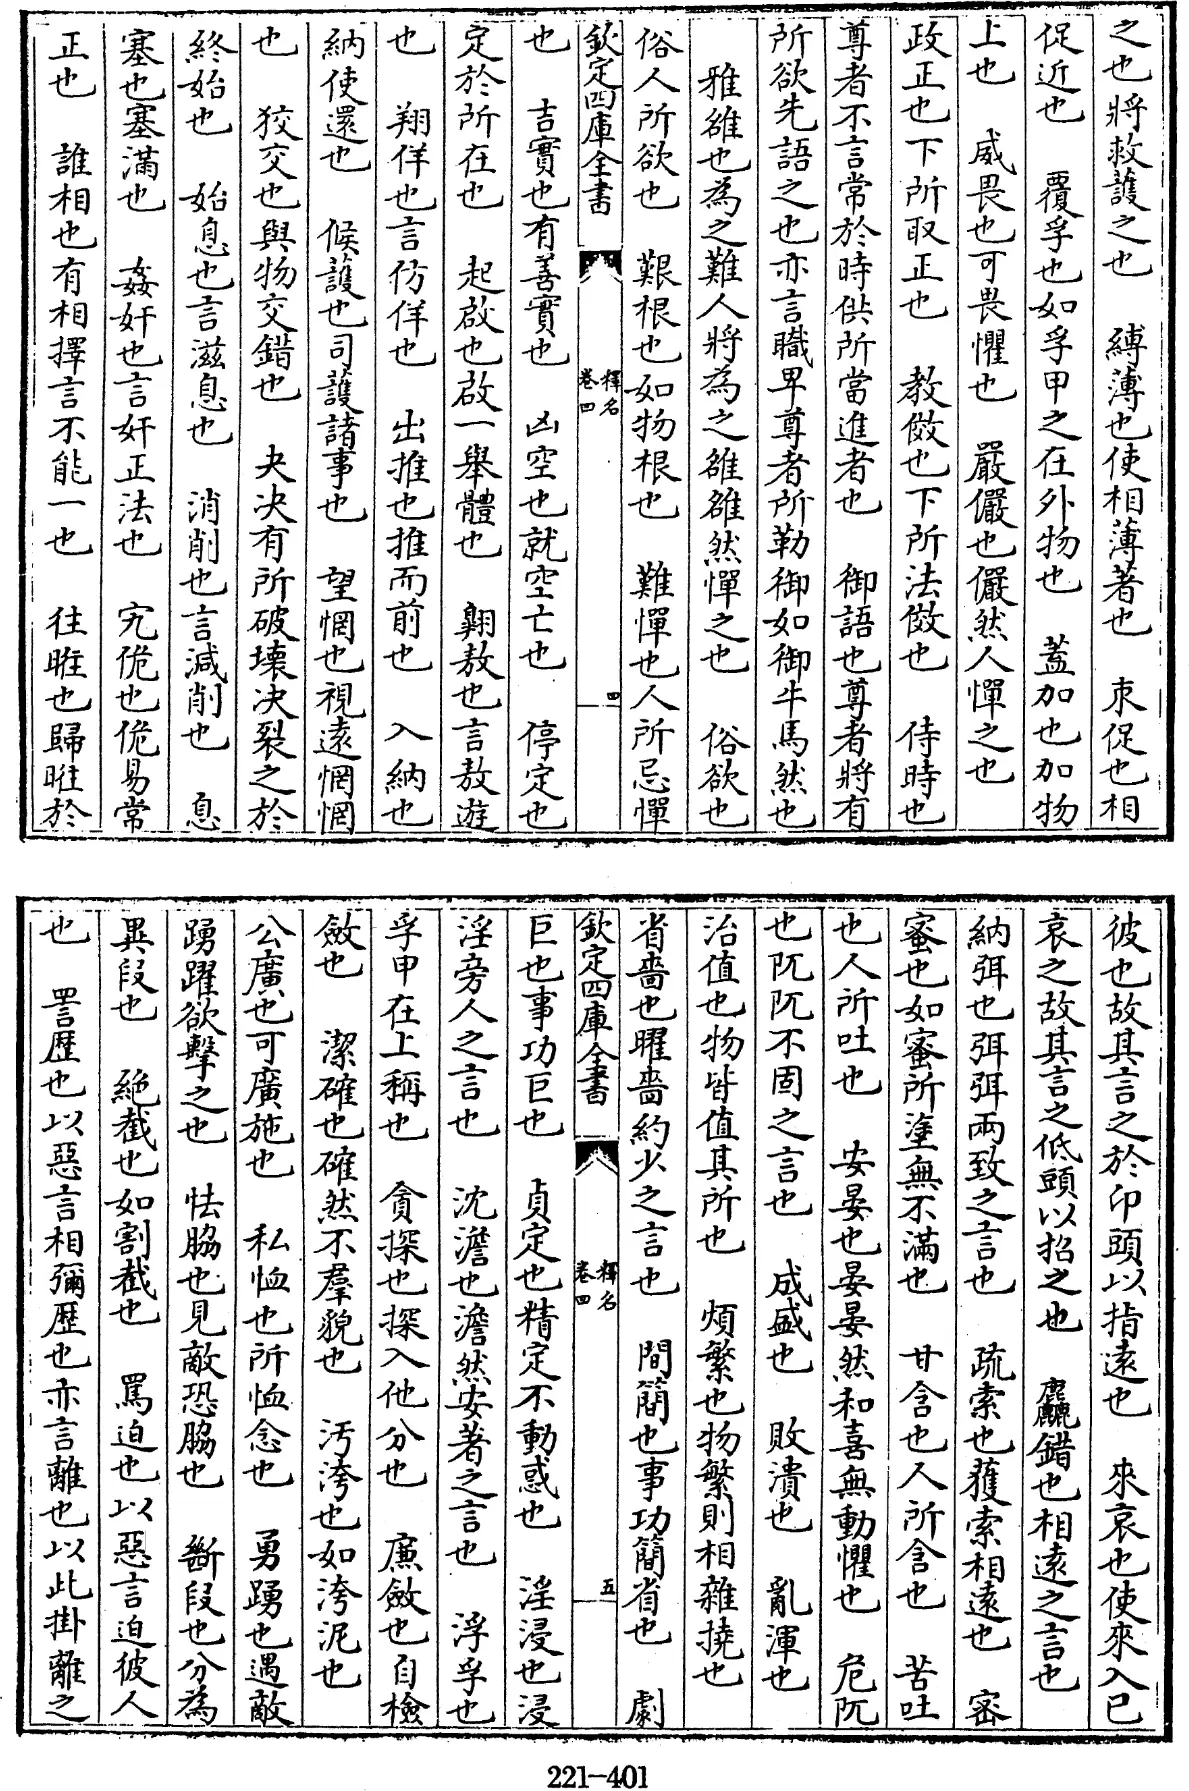 之也將救護之也　縛薄也使相薄著也　朿促也相
促近也　覆孚也如孚甲之在外物也　蓋加也加物
上也　威畏也可畏懼也　嚴儼也儼然人憚之也
政正也下所取正也　教傚也下所法傚也　侍時也
尊者不言常於時供所當進者也　御語也尊者將有
所欲先語之也亦言職卑尊者所勒御如御牛馬然也
雅雒也為之難人將為之雒雒然憚之也　俗欲也
俗人所欲也　艱根也如物根也　難憚也人所忌憚
欽定四庫全書　釋名卷四　四
也　吉實也有善實也　凶空也就空亡也　停定也
定於所在也　起啟也啟一舉體也　翺敖也言敖遊
也　翔佯也言仿佯也　出推也推而前也　入納也
納使還也　候護也司護諸事也　望惘也視遠惘惘
也　狡交也與物交錯也　夬决有所破壊决裂之於
終始也　始息也言滋息也　消削也言減削也　息
塞也塞滿也　姦奸也言奸正法也　宄佹也佹易常
正也　誰相也有相擇言不能一也　往暀也歸暀於
彼也故其言之於卬頭以指遠也　來哀也使來入已
哀之故其言之低頭以招之也　麤錯也相遠之言也
納弭也弭弭兩致之言也　疏索也獲索相遠也　密
蜜也如蜜所塗無不滿也　甘含也人所含也　苦吐
也人所吐也　安晏也晏晏然和喜無動懼也　危阢
也阢阢不固之言也　成盛也　敗潰也　亂渾也
治值也物皆值其所也　煩繁也物繁則相雜撓也
省嗇也曜嗇約少之言也　間簡也事功簡省也　劇
欽定四庫全書　釋名卷四　五
巨也事功巨也　貞定也精定不動惑也　淫浸也浸
淫旁人之言也　沈澹也澹然安著之言也　浮孚也
孚甲在上稱也　貪探也探入他分也　廉斂也自檢
斂也　潔確也確然不羣貌也　汚洿也如洿泥也
公廣也可廣施也　私恤也所恤念也　勇踴也遇敵
踴躍欲擊之也　怯脇也見敵恐脇也　斷段也分為
異段也　絶截也如割截也　罵迫也以惡言迫彼人
也　詈歴也以惡言相彌歴也亦言離也以此掛離之
221-401